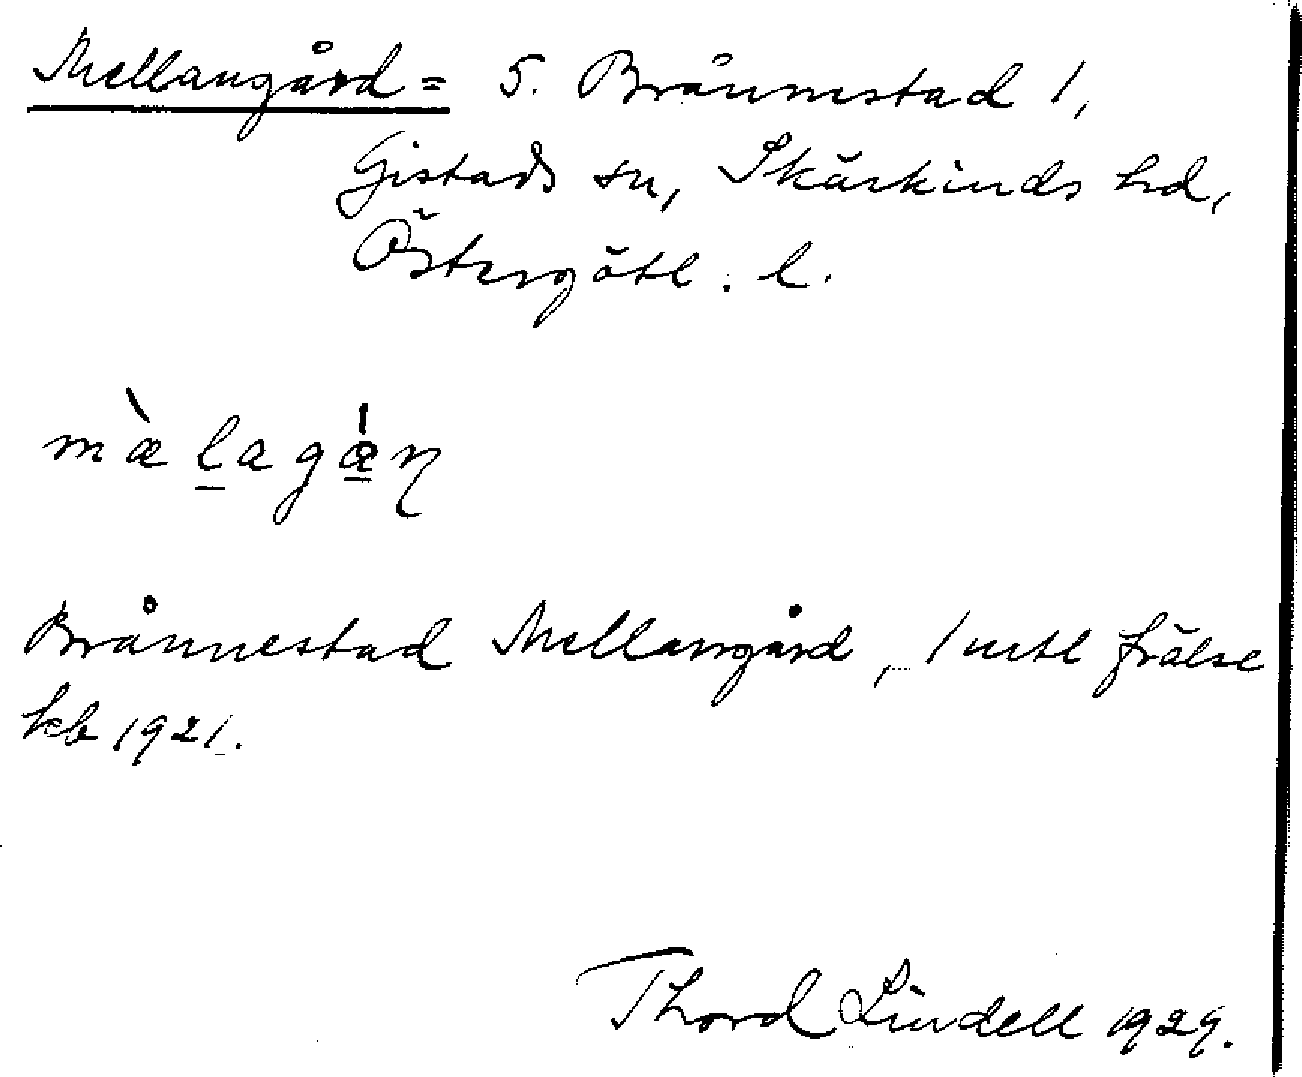 Mellangård = S. Brånnestad 1,
Gistads sn, Skärkinds hd,
Östergötl. l.
màḻagæ̱̍ɳ
Brånnestad Mellangård, 1 mtl frälse
kb 1921.
Thord Lindell 1929.